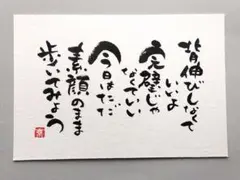 背伸びしなくて
いいよ
完璧じゃ
なくていい
今日はただ
素顔のまま
歩いてみよう